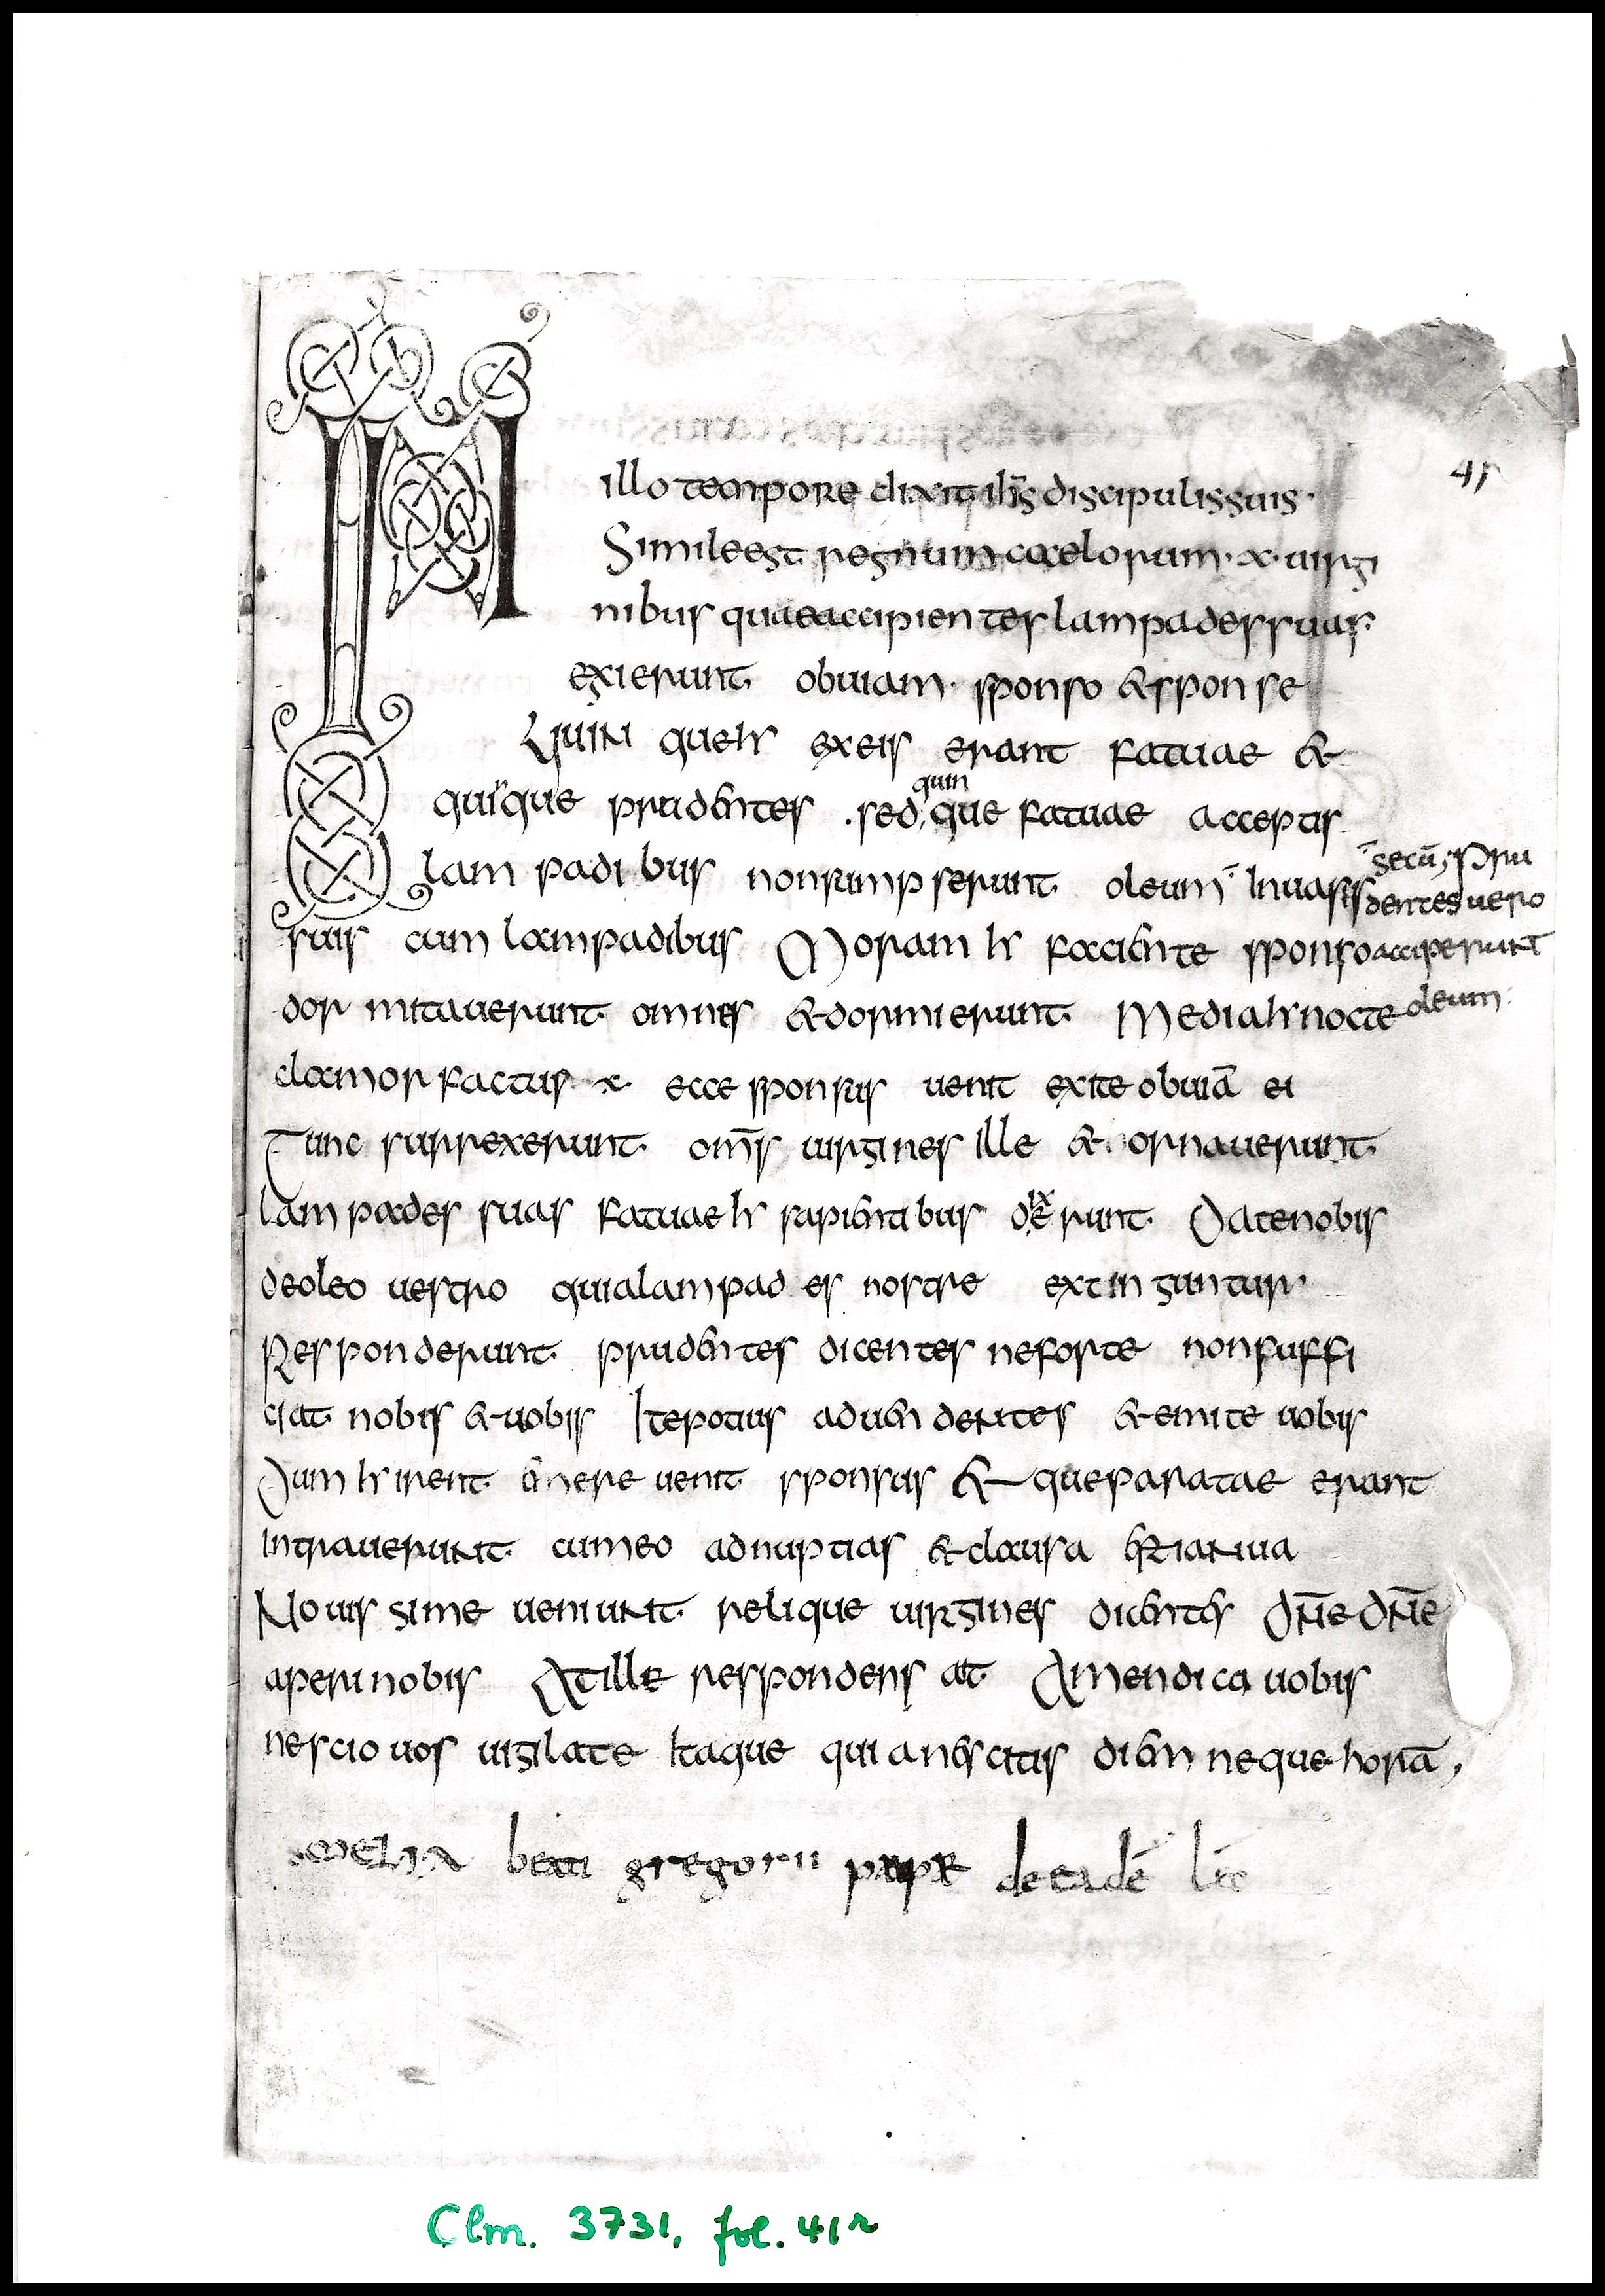 IN
illo tempore dixit ihs discipulis suis·
Simile est regnum caelorum· x· uirgi
nibus quae accipientes lampades suas·
exierunt obuiam· sponso & sponse
Quinque ex eis erant fatuae &
quīque prudentes· sed quinque fatuae acceptis
lampadibus non sumpserunt oleum In uasis
secū; Pru
dentes uero
acciperunt
oleum
suis cum lampadibus Moram faciente sponso
dormitauerunt omnes & dormierunt Media nocte
clamor factus ecce sponsus uenit exite obuiā ei
Tunc surrexerunt om̄s uirgines Ille & ornauerunt
lampades suas fatuae sapientibus dixerunt Date nobis
de oleo uestro quia lampades nostre extinguntur·
Responderunt prudentes dicentes ne forte non suffi
ciat nobis & uobis Ite potius ad uendentes & emite uobis
Dum irent emere uenit sponsus & que paratae erant
intrauerunt cum eo ad nuptias & clausa est ianua
Nouissime ueniunt relique uirgines dicentes dn̄e dn̄e
aperi nobis At ille respondens ait Amen dico uobis
nescio uos uigilate Itaque quia nescitis diem neque horā,
omelia beati gregorii pape de eadē
41
Clm. 3731, fol. 41r